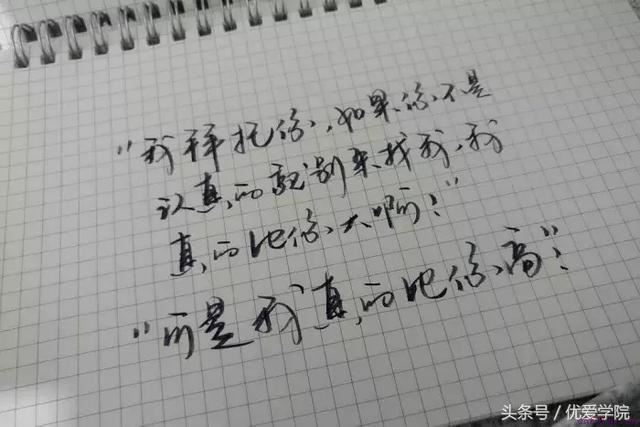 "我拜托你,如果你不是
认真的就别来找我,我
真的比你大啊!"
"可是我真的比你高"!
头条号/优爱学院